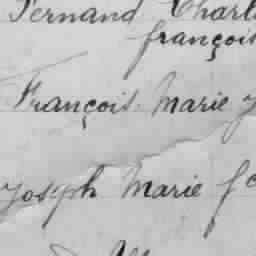 Fernand Charl
françois
François Marie J
Joseph Marie fc